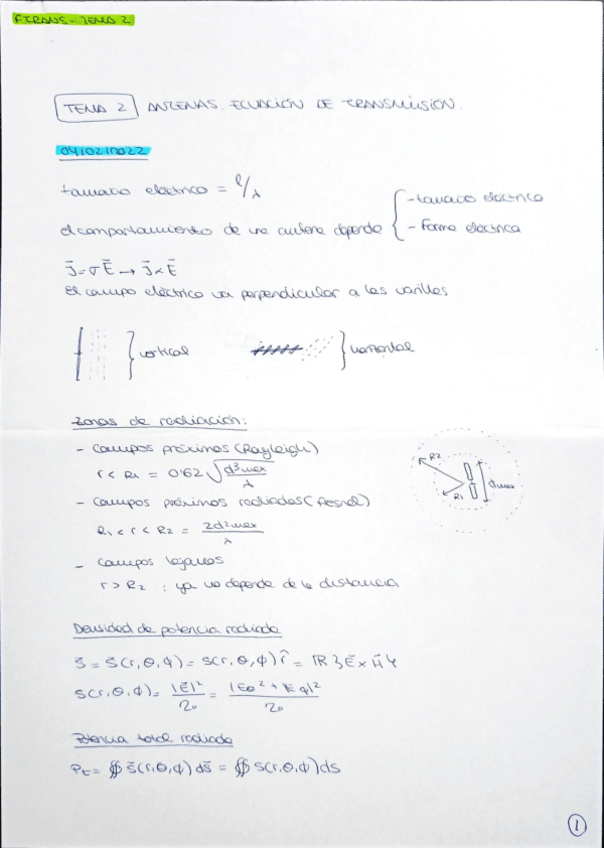 FTRANS - TEMA 2
TEMA 2 ANTENAS. ECUACIÓN DE TRANSMISIÓN.
04/02/2022
tamaño eléctrico = l/λ
el comportamiento de una antena depende { - tamaño eléctrico
- Forma eléctrica
J⃗ = σE⃗ → J⃗ ∝ E⃗
El campo eléctrico va perpendicular a las varillas
} vertical } horizontal
Zonas de radiación:
- Campos próximos (Rayleigh)
r < R1 = 0'62 √(d³max/λ)
- Campos próximos radiados (Fresnel)
R1 < r < R2 = 2d²max/λ
- Campos lejanos
r > R2 : ya no depende de la distancia
R2
R1
dmax
Densidad de potencia radiada
S⃗ = S⃗(r,θ,φ) = S(r,θ,φ) r̂ = IR{E⃗ x H⃗}
S(r,θ,φ) = |E⃗|²/η₀ = |Eθ² + Eφ|²/η₀
Potencia total radiada
Pt = ∯ S⃗(r,θ,φ) dS⃗ = ∯ S(r,θ,φ) ds
1